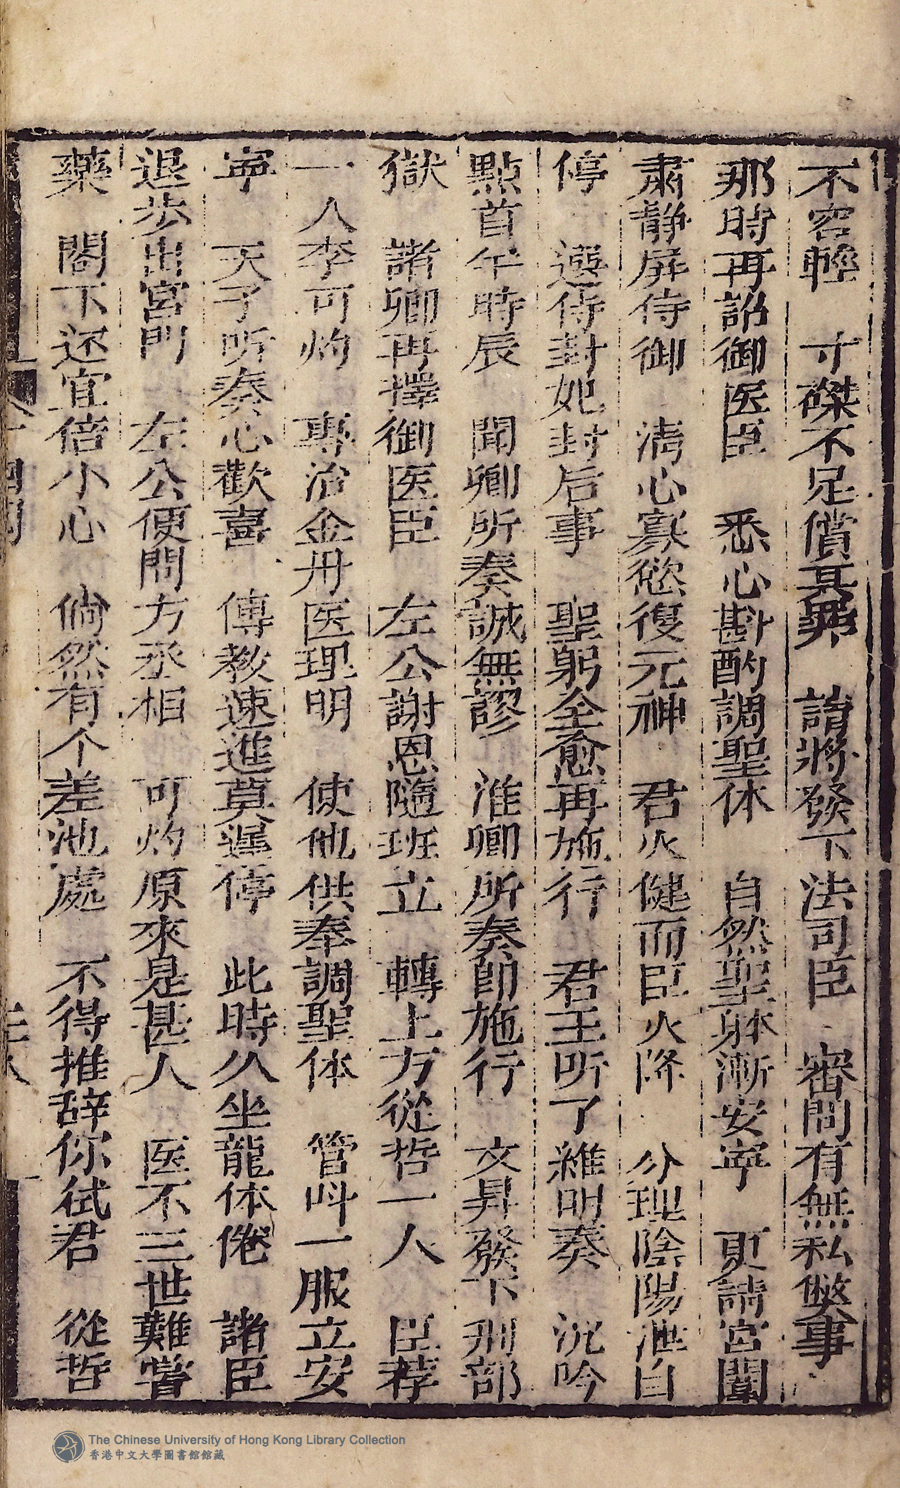 不容輕　寸磔不足償其罪　請將發下法司臣　審問有無私弊事
那時再詔御医臣　悉心斟酌調聖体　自然聖躰漸安寧　更請宮闈
肅静屏侍御　清心寡慾復元神　君火健而臣火降　分理陰陽泄自
停　選侍封妃封后事　聖躬全愈再施行　君王听了維明奏　沉吟
點首午時辰　聞卿所奏誠無謬　准卿所奏即施行　文昇發下刑部
獄　諸卿再擇御医臣　左公謝恩隨班立　轉上方從哲一人　臣荐
一人李可灼　專治金丹医理明　使他供奉調聖体　管呌一服立安
寧　天子听奏心歡喜　傳敎速進莫遲停　此時久坐龍体倦　諸臣
退步出宮門　左公便問方丞相　可灼原來是甚人　医不三世難嘗
藥　閣下还宜倍小心　倘然有个差池處　不得推辞你弒君　從哲
The Chinese University of Hong Kong Library Collection
香港中文大學圖書館館藏